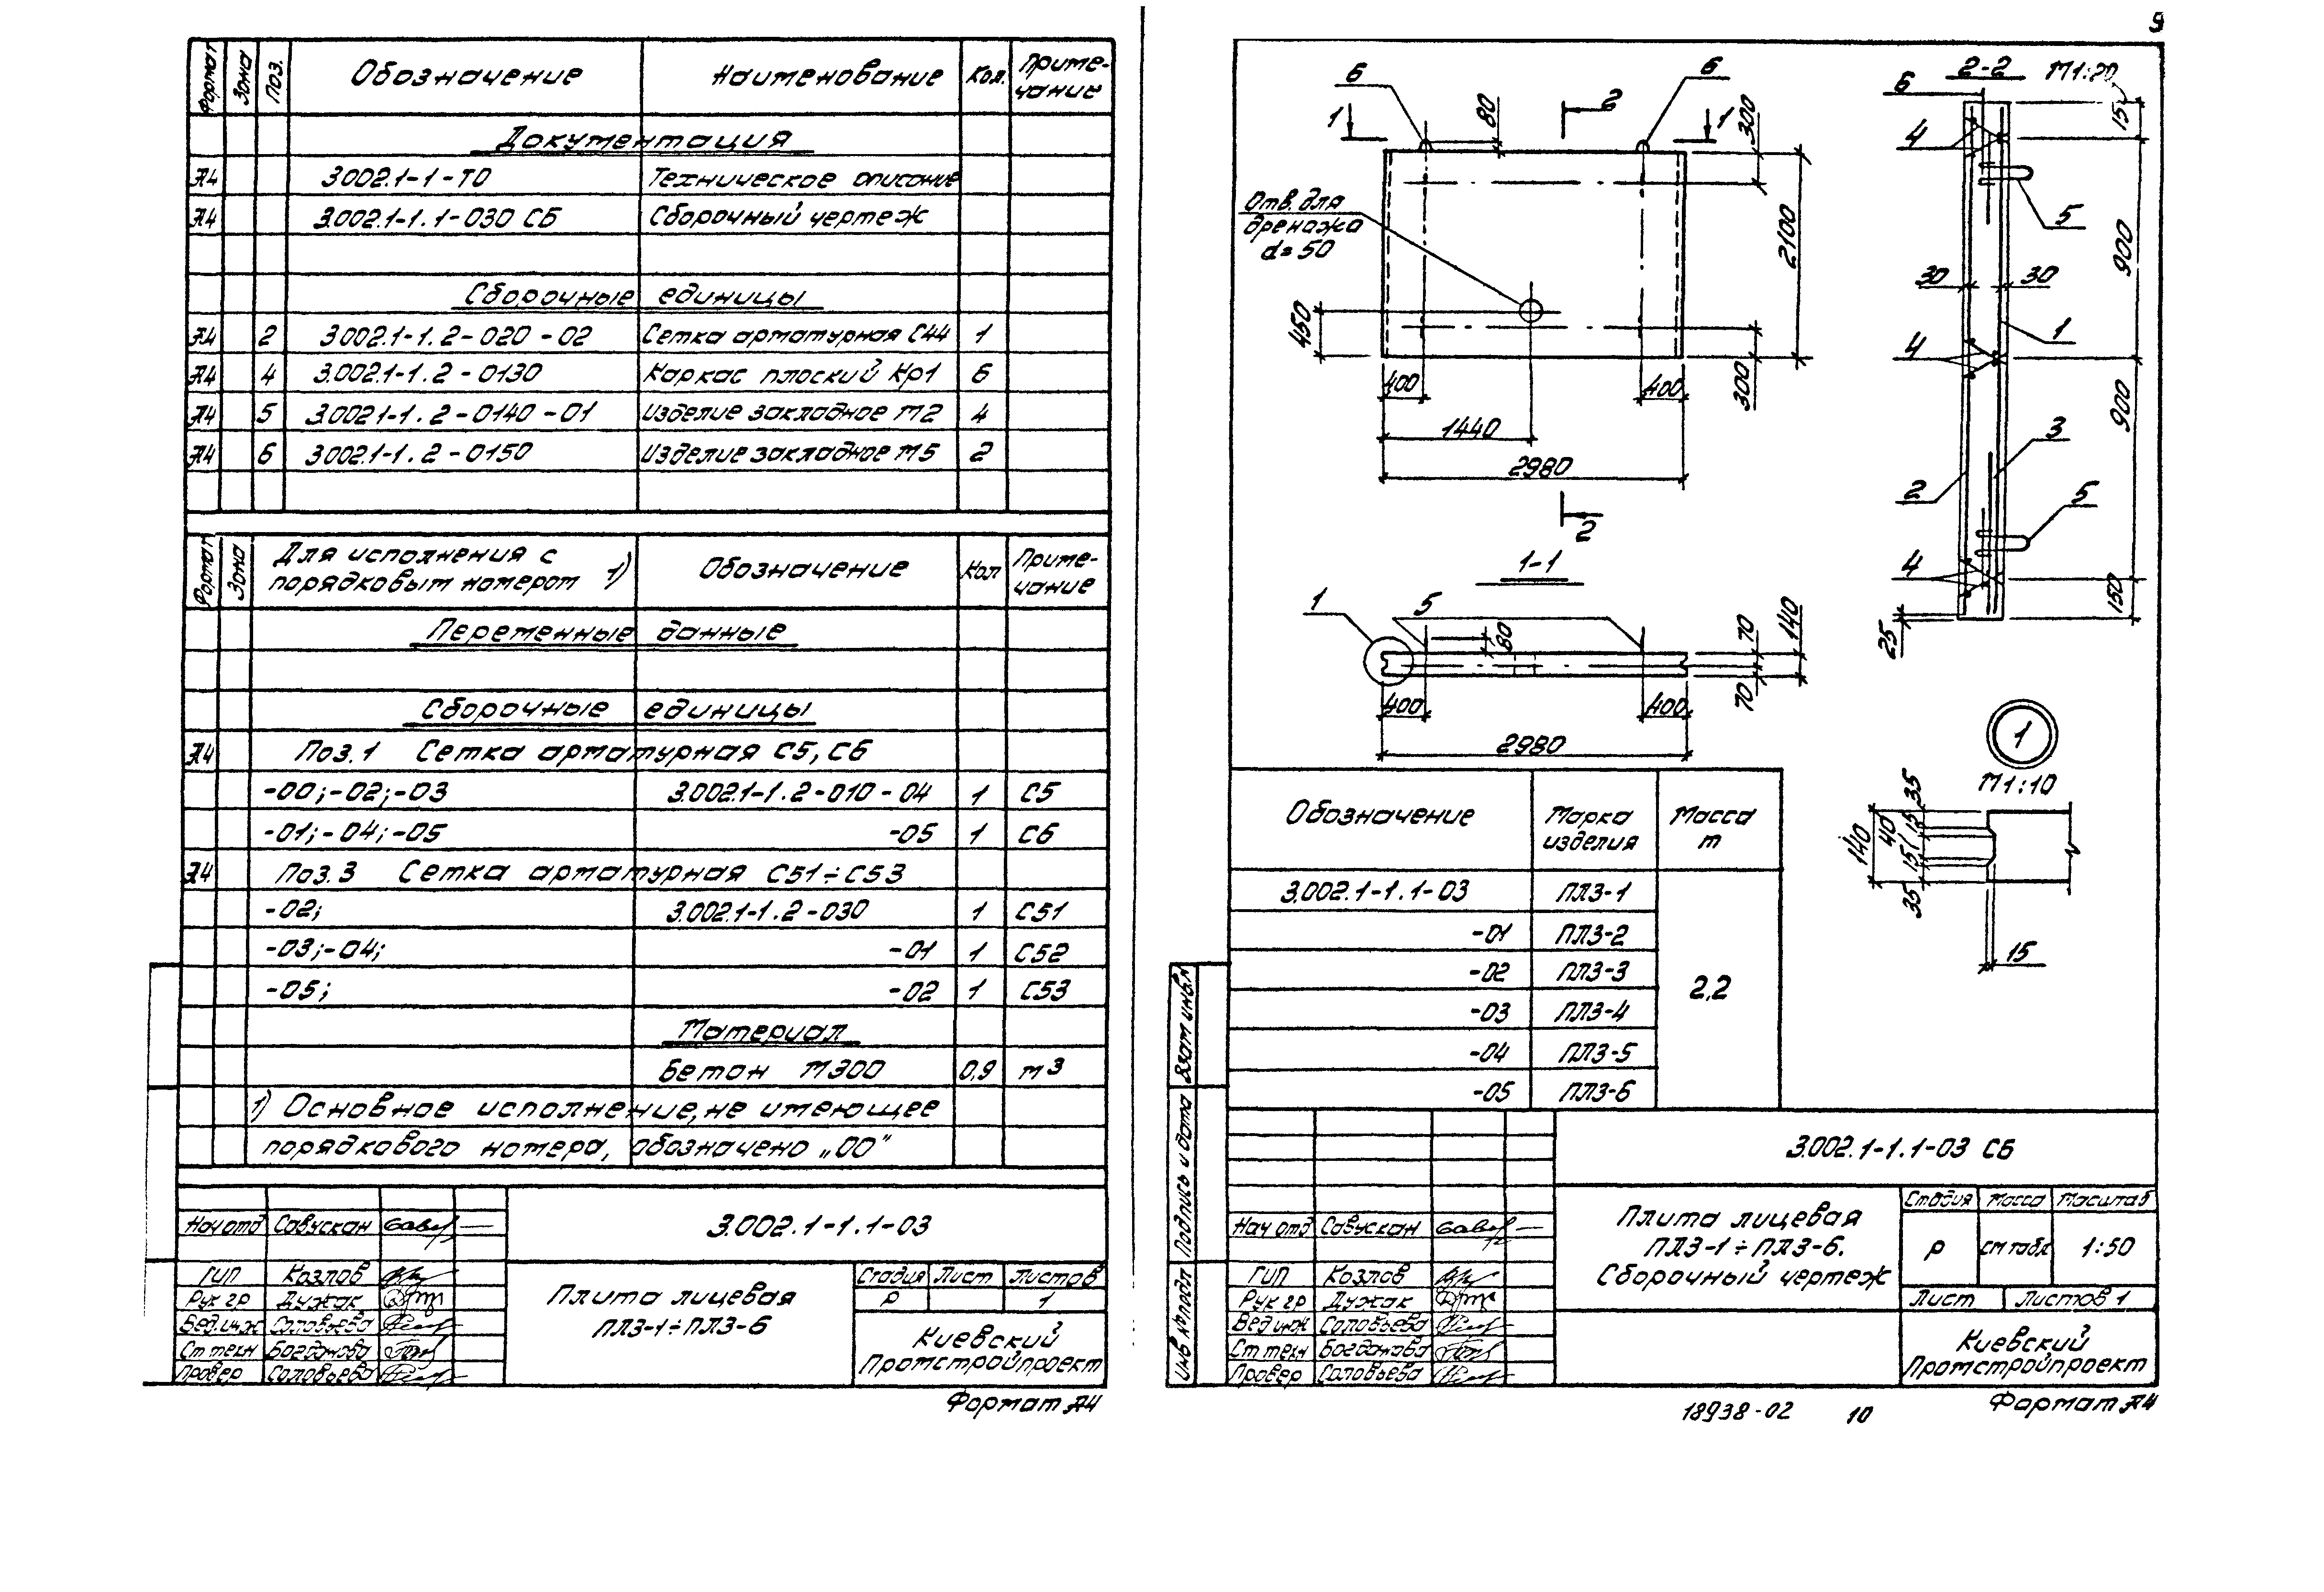 Формат Зона Поз. Обозначение Наименование Кол. Приме-
чание
Документация
А4 3.002.1-1-ТО Техническое описание
А4 3.002.1-1.1-030 СБ Сборочный чертеж
Сборочные единицы
А4 2 3.002.1-1.2-020-02 Сетка арматурная С44 1
А4 4 3.002.1-1.2-0130 Каркас плоский Кр1 6
А4 5 3.002.1-1.2-0140-01 Изделие закладное М2 4
А4 6 3.002.1-1.2-0150 Изделие закладное М5 2
Формат Зона Для исполнения с
порядковым номером 1) Обозначение Кол Приме-
чание
Переменные данные
Сборочные единицы
А4 Поз. 1 Сетка арматурная С5, С6
-00;-02;-03 3.002.1-1.2-010-04 1 С5
-01;-04;-05 -05 1 С6
А4 Поз. 3 Сетка арматурная С51÷С53
-02; 3.002.1-1.2-030 1 С51
-03;-04; -01 1 С52
-05; -02 1 С53
Материал
Бетон М300 0,9 м3
1) Основное исполнение, не имеющее
порядкового номера, обозначено „00"
Нач отд Савускан
3.002.1-1.1-03
ГИП Козлов
Рук гр Дужак
Вед.инж Соловьева
Ст техн Богданова
Провер Соловьева
Плита лицевая
ПЛ3-1÷ПЛ3-6
Стадия Лист Листов
Р 1
Киевский
Промстройпроект
Формат А4
9
6 6
1 1
80
2
300
Отв. для
дренажа
d=50
2100
450
400 400
300
1440
2980
2
2-2 М1:20
6
150
4
5
900
30 30
1
4
900
3
2
5
4
150
25
1-1
1 5
80
70
140
70
400 400
2980
1
М1:10
35
15
40
140
15
35
15
Обозначение Марка
изделия Масса
т
3.002.1-1.1-03 ПЛ3-1
-01 ПЛ3-2
-02 ПЛ3-3
-03 ПЛ3-4
-04 ПЛ3-5
-05 ПЛ3-6
2,2
Взам инв.№
Подпись и дата
Инв № подл
3.002.1-1.1-03 СБ
Нач отд Савускан
ГИП Козлов
Рук гр Дужак
Вед инж Соловьева
Ст техн Богданова
Провер Соловьева
Плита лицевая
ПЛ3-1÷ПЛ3-6.
Сборочный чертеж
Стадия Масса Масштаб
Р см табл 1:50
Лист Листов 1
Киевский
Промстройпроект
18938-02 10
Формат А4